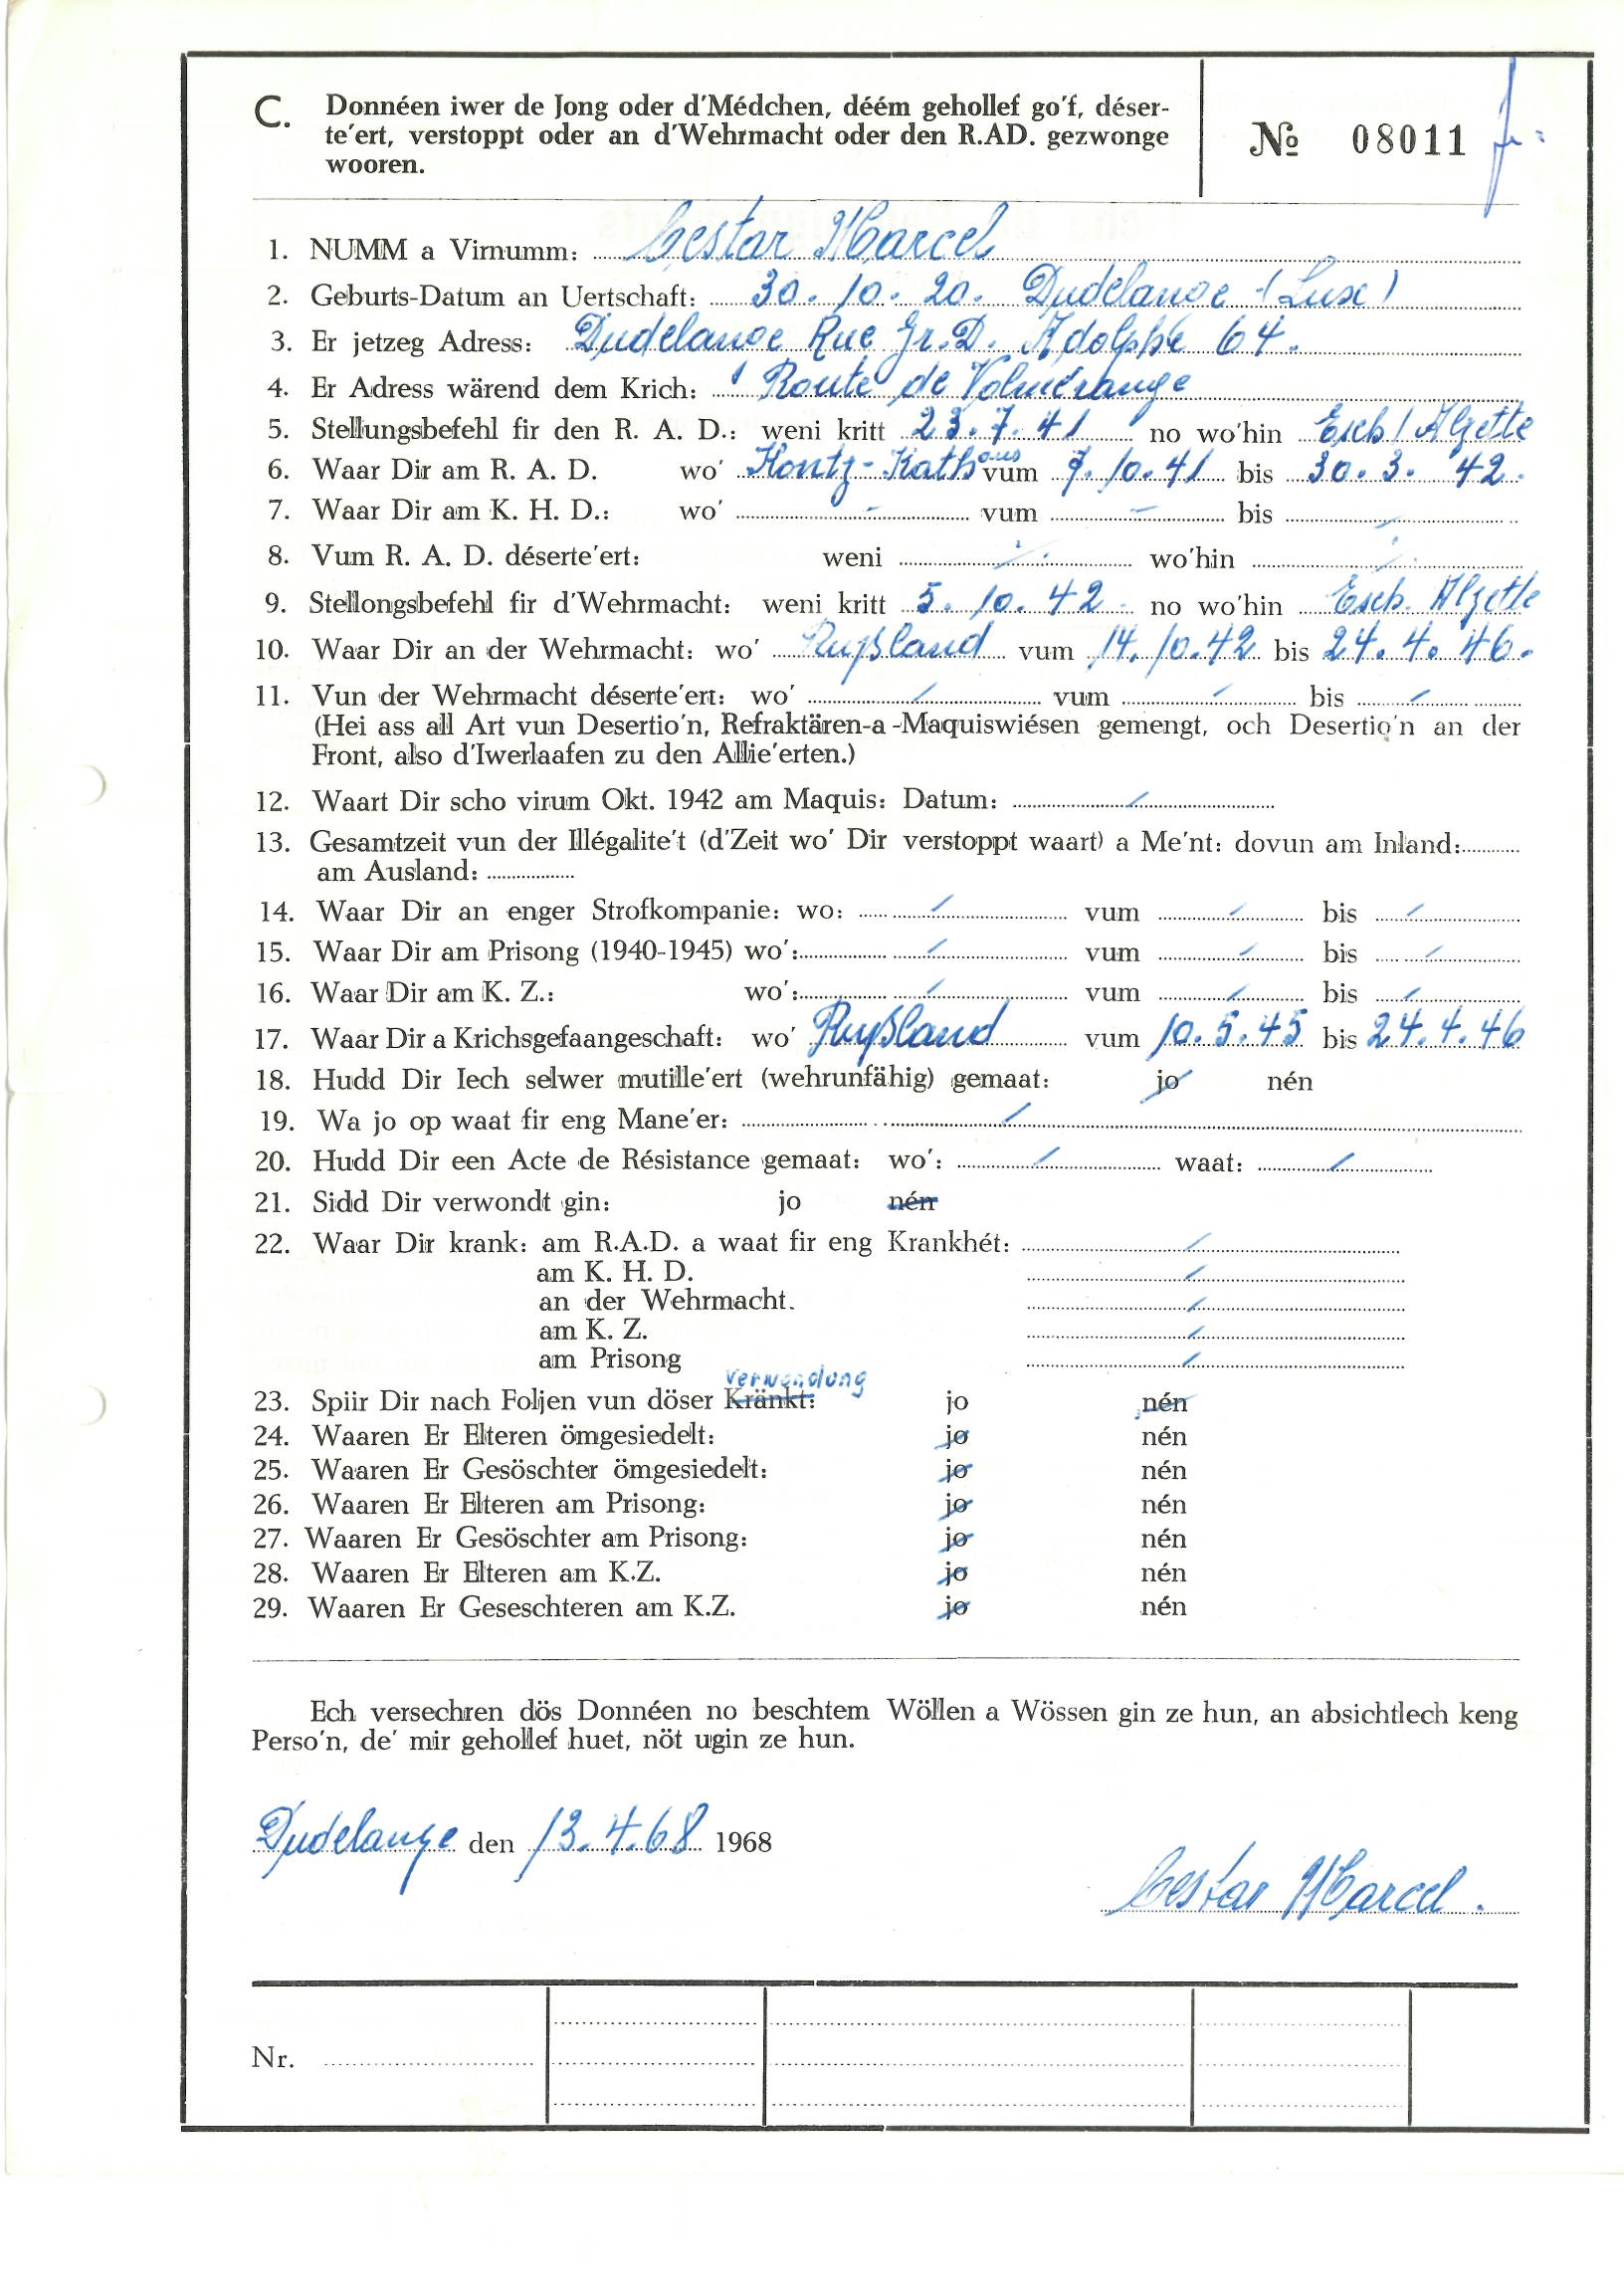 C. Donnéen iwer de Jong oder d'Médchen, déém gehollef go'f, déser-
te'ert, verstoppt oder an d'Wehrmacht oder den R.AD. gezwonge
wooren.
№ 08011
1. NUMM a Virnumm: Cestar Marcel
2. Geburts-Datum an Uertschaft: 30.10.20. Dudelange (Lux)
3. Er jetzeg Adress: Dudelange Rue Gr.D. Adolphe 64.
4. Er Adress wärend dem Krich: " Route de Volmerange
5. Stellungsbefehl fir den R. A. D.: weni kritt 23.7.41 no wo'hin Esch/Alzette
6. Waar Dir am R. A. D. wo' Kontz-Kathaus vum 7.10.41 bis 30.3.42.
7. Waar Dir am K. H. D.: wo' - vum - bis -
8. Vum R. A. D. déserte'ert: weni wo'hin
9. Stellongsbefehl fir d'Wehrmacht: weni kritt 5.10.42 no wo'hin Esch. Alzette
10. Waar Dir an der Wehrmacht: wo' Rußland vum 14.10.42 bis 24.4.46.
11. Vun der Wehrmacht déserte'ert: wo' / vum / bis /
(Hei ass all Art vun Desertio'n, Refraktären-a-Maquiswiésen gemengt, och Desertio'n an der
Front, also d'Iwerlaafen zu den Allie'erten.)
12. Waart Dir scho virum Okt. 1942 am Maquis: Datum: /
13. Gesamtzeit vun der Illégalite't (d'Zeit wo' Dir verstoppt waart) a Me'nt: dovun am Inland:
am Ausland:
14. Waar Dir an enger Strofkompanie: wo: / vum / bis /
15. Waar Dir am Prisong (1940-1945) wo': / vum / bis /
16. Waar Dir am K. Z.: wo': / vum / bis /
17. Waar Dir a Krichsgefaangeschaft: wo' Rußland vum 10.5.45 bis 24.4.46
18. Hudd Dir Iech selwer mutille'ert (wehrunfähig) gemaat: jo nén
19. Wa jo op waat fir eng Mane'er: /
20. Hudd Dir een Acte de Résistance gemaat: wo': / waat: /
21. Sidd Dir verwondt gin: jo nén
22. Waar Dir krank: am R.A.D. a waat fir eng Krankhét: /
am K. H. D. /
an der Wehrmacht. /
am K. Z. /
am Prisong /
Verwondong
23. Spiir Dir nach Foljen vun döser Kränkt: jo nén
24. Waaren Er Elteren ömgesiedelt: jo nén
25. Waaren Er Gesöschter ömgesiedelt: jo nén
26. Waaren Er Elteren am Prisong: jo nén
27. Waaren Er Gesöschter am Prisong: jo nén
28. Waaren Er Elteren am K.Z. jo nén
29. Waaren Er Geseschteren am K.Z. jo nén
Ech versechren dös Donnéen no beschtem Wöllen a Wössen gin ze hun, an absichtlech keng
Perso'n, de' mir gehollef huet, nöt ugin ze hun.
Dudelange den 13.4.68 1968
Cestar Marcel.
Nr.